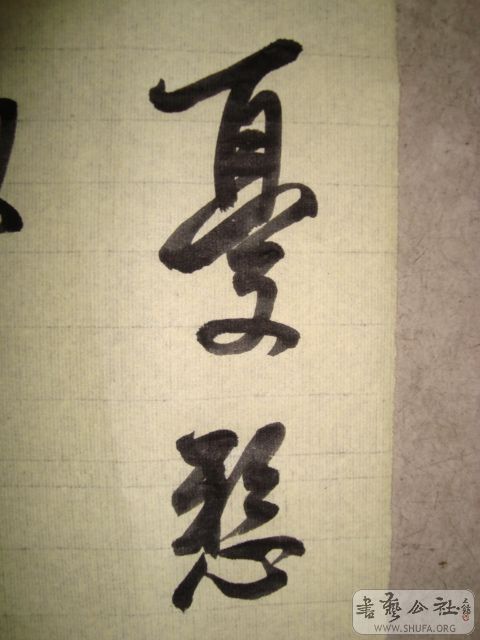 憂愁
書藝公社
WWW.SHUFA.ORG